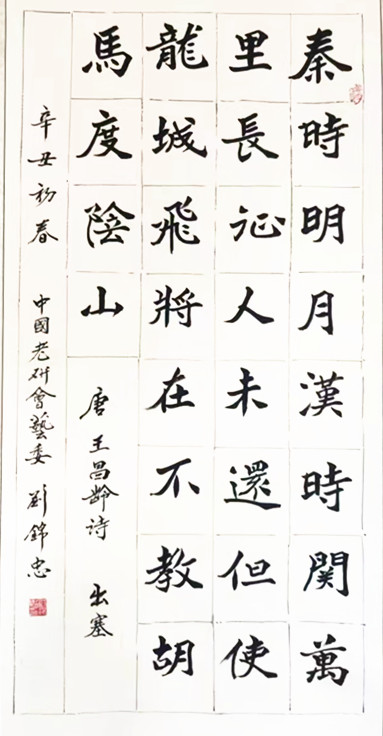 秦時明月漢時関萬
里長征人未還但使
龍城飛將在不教胡
馬度陰山
唐王昌齡诗 出塞
辛丑初春 中國老研會藝委 劉錦忠